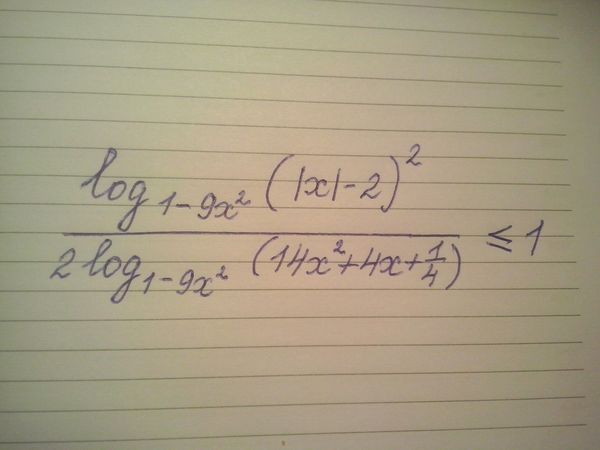 log₁₋₉ₓ² (|x|-2)²
2 log₁₋₉ₓ² (14x²+4x+1/4) ≤ 1